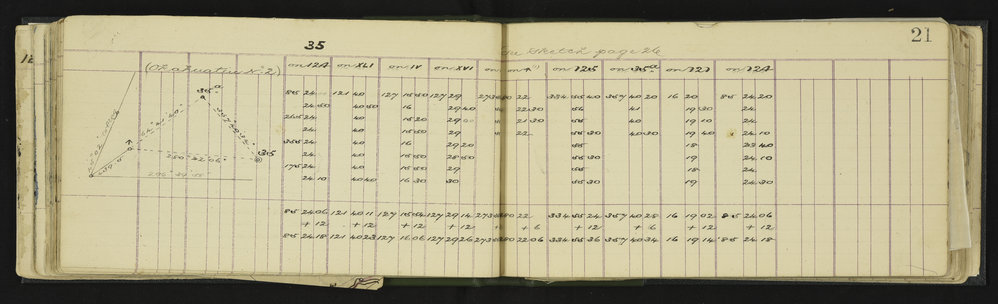 21
35
Sketch page 26
(Okahuatiu No 2)
on 12A on XLI on IV on XVI on 125 on 35a on 121 on 12A
85 24. 121 40 127 15 50 127 29. 22. 334 55 40 357 40 20 16 20 85 24 20
24 50 40 50 16 29 40 22 30 56 41 19 30 24.
265 24 40 15 20 29 21 30 55 40 19 10 24.
24. 40 15 50 29 22. 55 30 40 30 19 40 24 10
355 24. 40 16 29 20 55 18 23 40
24. 40 15 50 28 50 55 30 19 24 10
175 24. 40 15 50 29 55 18 24.
24 10 40 40 16 30 30 55 30 19 24 30
85 24 06 121 40 11 127 15 54 127 29 14 22. 334 55 24 357 40 28 16 19 02 85 24 06
+ 12 + 12 + 12 + 12 + 6 + 12 + 6 + 12 + 12
85 24 18 121 40 23 127 16 06 127 29 26 22 06 334 55 36 357 40 34 16 19 14 85 24 18
35a
35